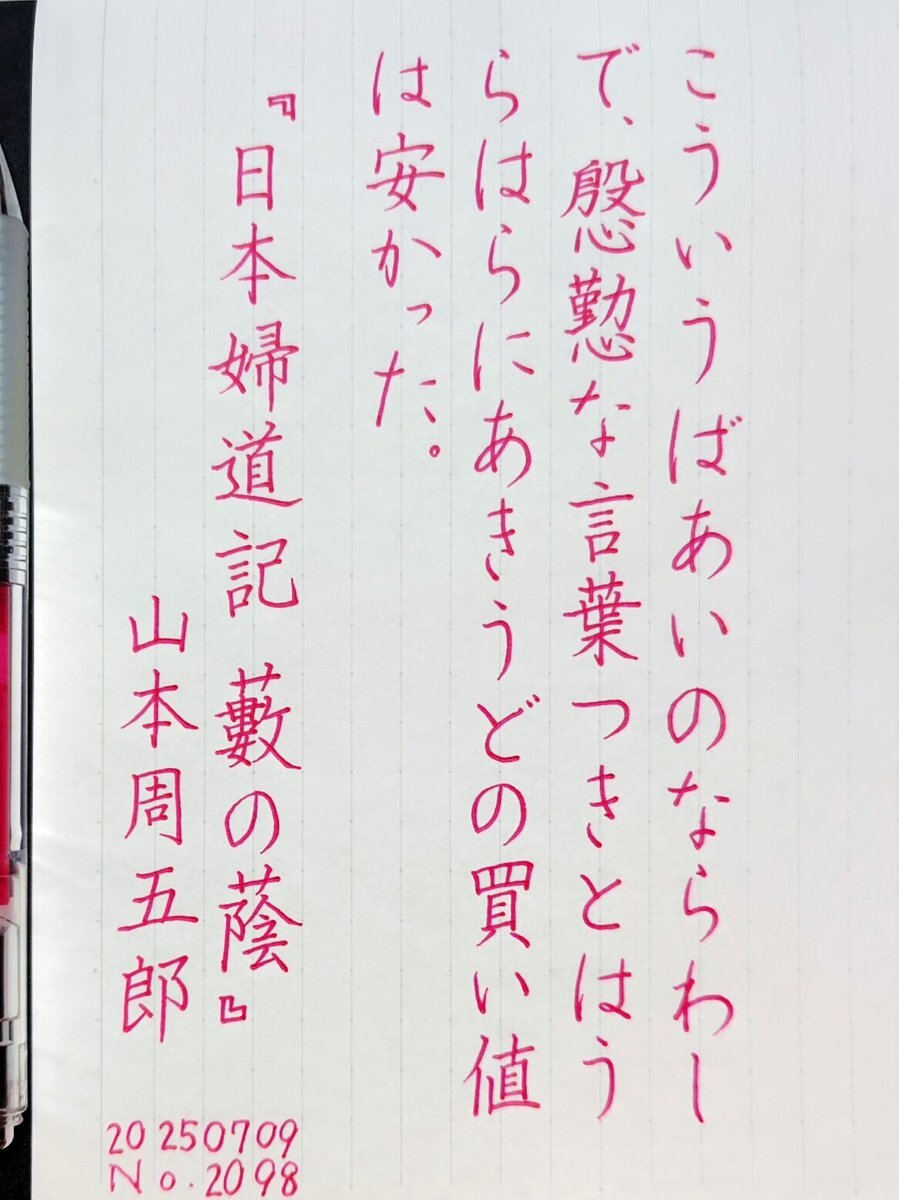 こういうばあいのならわし
で、慇懃な言葉つきとはう
らはらにあきうどの買い値
は安かった。
『日本婦道記 藪の蔭』
山本周五郎
20250709
No.2098